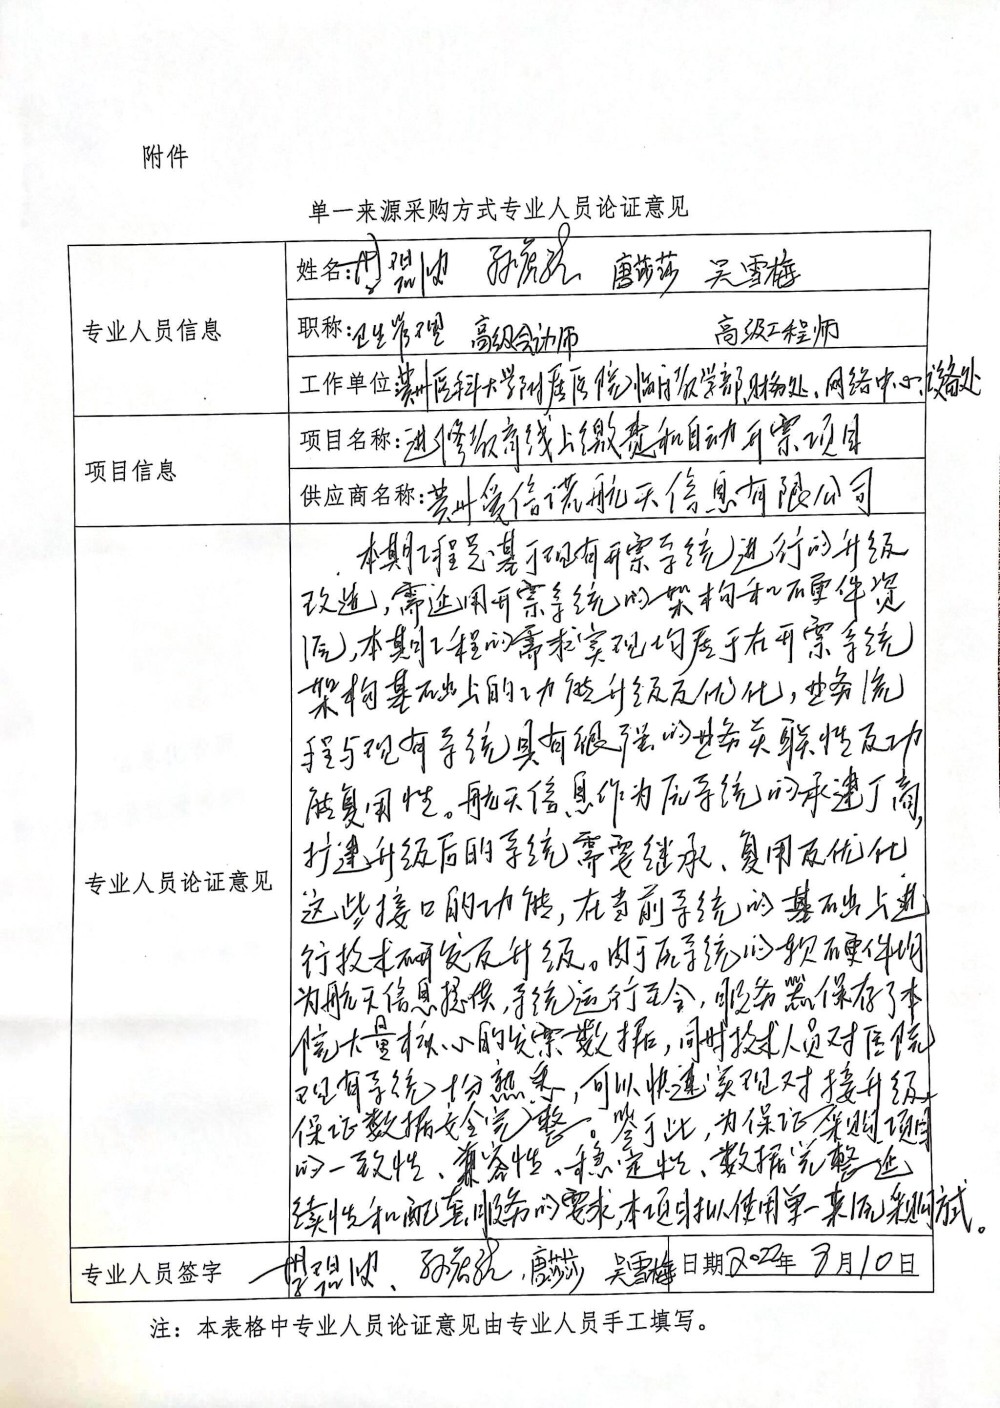 附件
单一来源采购方式专业人员论证意见
专业人员信息
姓名: 唐莎莎 吴雪梅
职称: 卫生管理 高级会计师 高级工程师
工作单位 贵州医科大学附属医院临床教学部、财务处、网络中心、设备处
项目信息
项目名称: 进修教育线上缴费和自动开票项目
供应商名称: 贵州爱信诺航天信息有限公司
专业人员论证意见
本期工程是基于现有开票系统进行的升级
改造,需延用开票系统的架构和硬件资
源,本期工程的需求实现均属于在开票系统
架构基础上的功能升级及优化,业务流
程与现有系统具有很强的业务关联性及功
能复用性。航天信息作为原系统的承建厂商,
扩建升级后的系统需要继承、复用及优化
这些接口的功能,在当前系统的基础上进
行技术研发及升级。由于原系统的软硬件均
为航天信息提供,系统运行至今,服务器保存了本
院大量核心的发票数据,同时技术人员对医院
现有系统十分熟悉,可以快速实现对接升级,
保证数据安全完整。鉴于此,为保证采购项目
的一致性、兼容性、稳定性、数据完整延
续性和配套服务的要求,本项目拟使用单一来源采购方式。
专业人员签字
唐莎莎 吴雪梅
日期 2022年 月10日
注: 本表格中专业人员论证意见由专业人员手工填写。